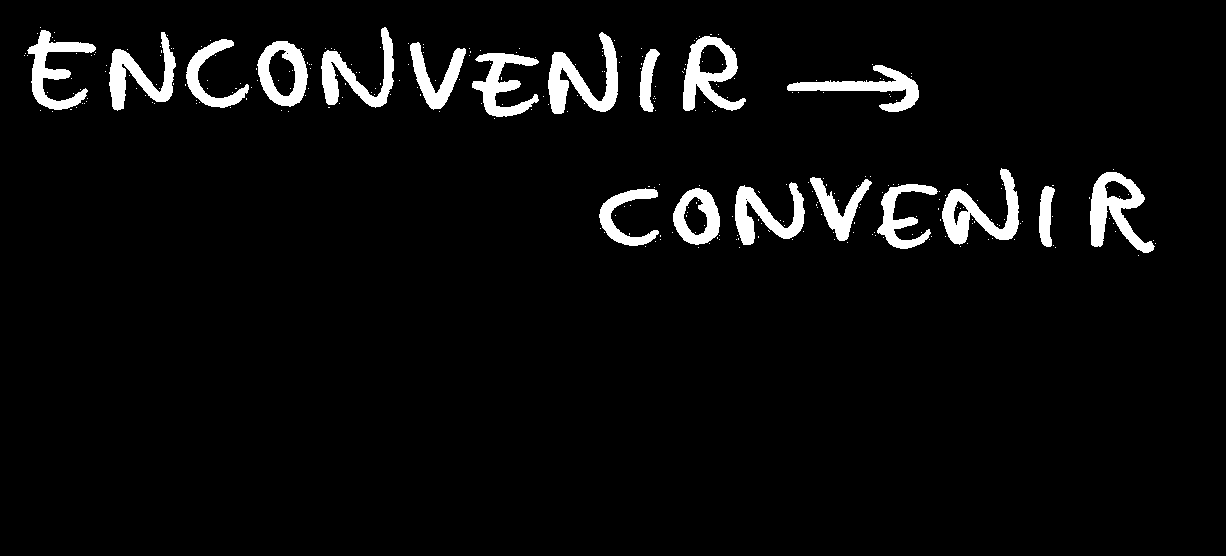 ENCONVENIR →
CONVENIR